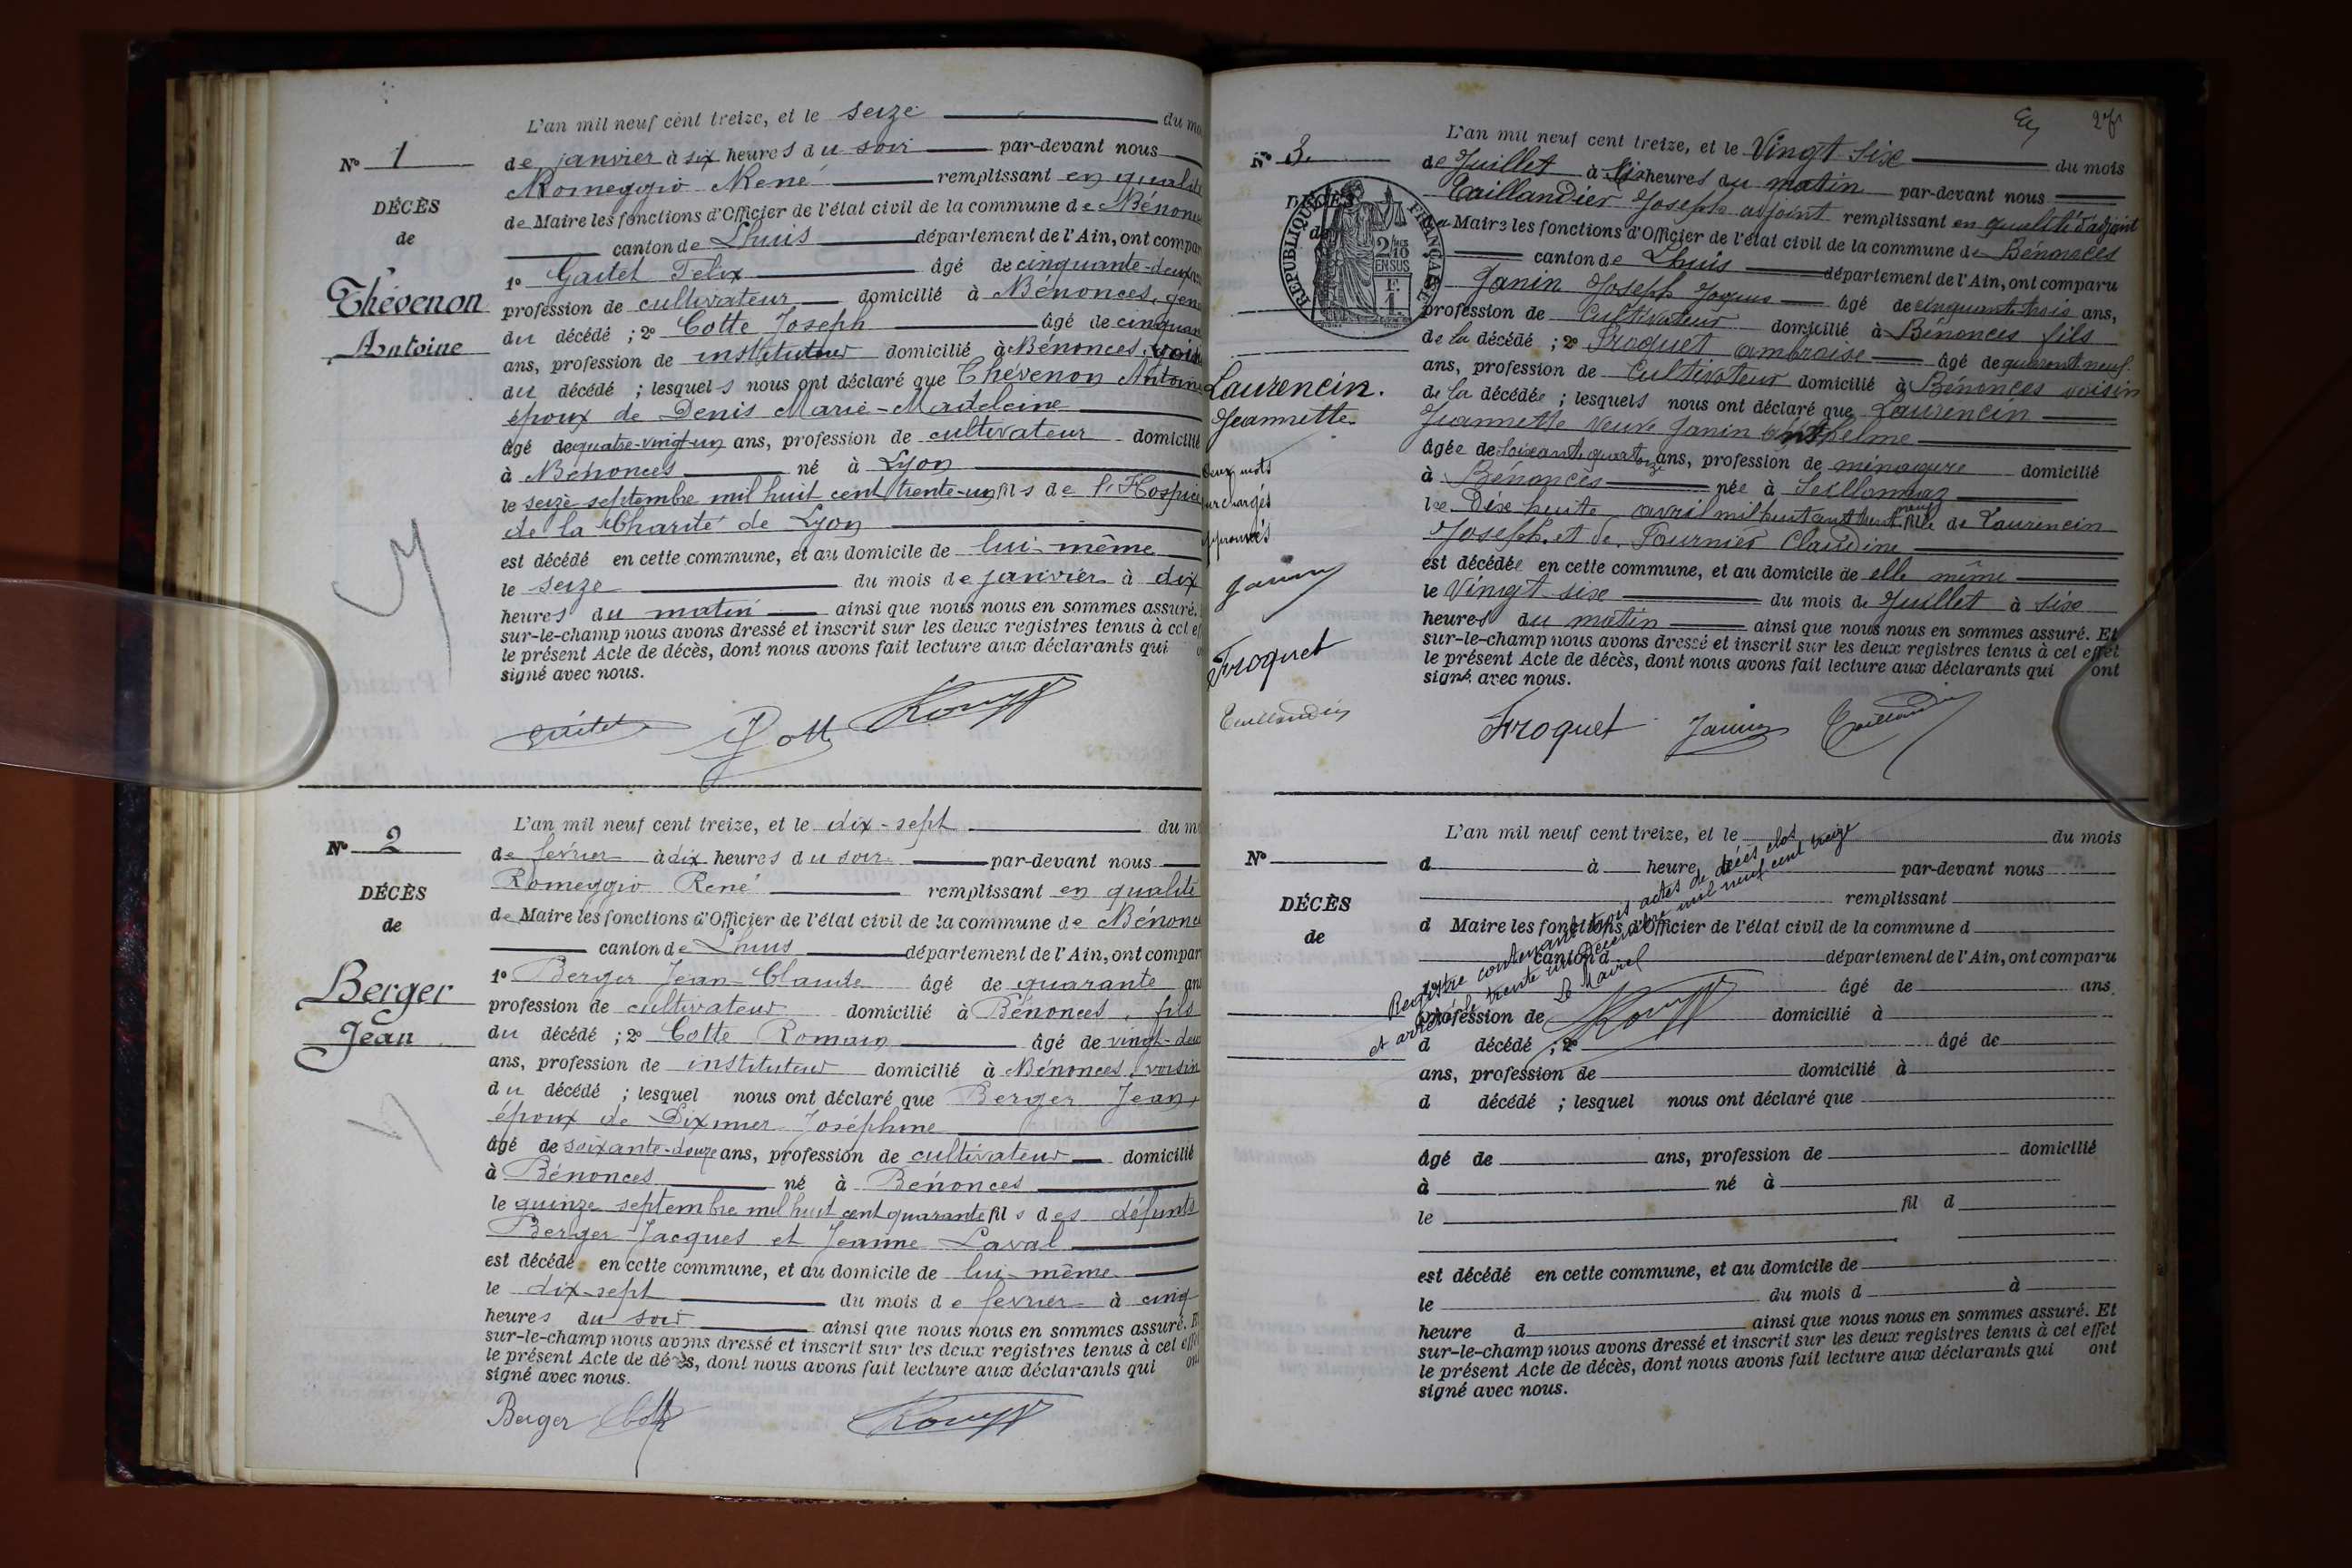 L'an mil neuf cent treize, et le seize du mo
N° 1
de janvier à six heures du soir par-devant nous
Romeggio René remplissant en qualité
DÉCÈS
de Maire les fonctions d'Officier de l'état civil de la commune de Bénonce
de
canton de Lhuis département de l'Ain, ont compar
1° Gaitet Félix âgé de cinquante-deux
Thévenon
profession de cultivateur domicilié à Bénonces, gen
du décédé ; 2° Cotte Joseph âgé de cinquan
Antoine
ans, profession de instituteur domicilié à Bénonces, voisin
du décédé ; lesquels nous ont déclaré que Thévenon Antoine
époux de Denis Marie-Madeleine
âgé de quatre-vingt-un ans, profession de cultivateur domicilié
à Bénonces né à Lyon
le seize septembre mil huit cent trente-un fils de l'Hospice
de la Charité de Lyon
est décédé en cette commune, et au domicile de lui-même
le seize du mois de janvier à dix
heures du matin ainsi que nous nous en sommes assuré.
sur-le-champ nous avons dressé et inscrit sur les deux registres tenus à cet ef
le présent Acte de décès, dont nous avons fait lecture aux déclarants qui
signé avec nous.
L'an mil neuf cent treize, et le dix-sept du m
N° 2
de février à dix heures du soir par-devant nous
Romeggio René remplissant en qualité
DÉCÈS
de Maire les fonctions d'Officier de l'état civil de la commune de Bénonce
de
canton de Lhuis département de l'Ain, ont compar
1° Berger Jean-Claude âgé de quarante an
Berger
profession de cultivateur domicilié à Bénonces, fils
Jean
du décédé ; 2° Cotte Romain âgé de vingt-deu
ans, profession de instituteur domicilié à Bénonces, voisin
du décédé ; lesquel nous ont déclaré que Berger Jean,
époux de Diximier Joséphine
âgé de soixante-douze ans, profession de cultivateur domicilié
à Bénonces né à Bénonces
le quinze septembre mil huit cent quarante fils des défunts
Berger Jacques et Jeanne Laval
est décédé en cette commune, et au domicile de lui-même
le dix-sept du mois de février à cinq
heures du soir ainsi que nous nous en sommes assuré. E
sur-le-champ nous avons dressé et inscrit sur les deux registres tenus à cet eff
le présent Acte de décès, dont nous avons fait lecture aux déclarants qui on
signé avec nous.
Berger
L'an mil neuf cent treize, et le Vingt six du mois
N° 3.
de Juillet à heures du matin par-devant nous
DÉCÈS
de
RÉPUBLIQUE FRANÇAISE
2/10
EN SUS
F.
1.
Taillandier Joseph adjoint remplissant en qualité d'adjoint
Maire les fonctions d'Officier de l'état civil de la commune de Bénonces
canton de Lhuis département de l'Ain, ont comparu
Janin Joseph âgé de cinquante trois ans,
profession de Cultivateur domicilié à Bénonces fils
de la décédé ; 2° Froquet ambroise âgé de quarante neuf
ans, profession de Cultivateur domicilié à Bénonces voisin
Laurencin.
Jeannette.
de la décédée ; lesquels nous ont déclaré que Laurencin
Jeannette veuve Janin anthelme
âgée de soixante quatorze ans, profession de ménagère domicilié
à Bénonces née à Seillonnaz
le Dix huit avril mil huit cent trente neuf fille de Laurencin
Joseph et de Fournier Claudine
deux mots
surchargés
approuvés
Janin
Froquet
Taillandier
est décédée en cette commune, et au domicile de elle même
le Vingt six du mois de Juillet à six
heures du matin ainsi que nous nous en sommes assuré. Et
sur-le-champ nous avons dressé et inscrit sur les deux registres tenus à cet effet
le présent Acte de décès, dont nous avons fait lecture aux déclarants qui ont
signé avec nous.
Froquet Janin Taillandier
L'an mil neuf cent treize, et le du mois
N°
d à heure d par-devant nous
remplissant
DÉCÈS
d Maire les fonctions d'Officier de l'état civil de la commune d
de
canton d département de l'Ain, ont comparu
1° âgé de ans,
profession de domicilié à
d décédé ; 2° âgé de
ans, profession de domicilié à
d décédé ; lesquel nous ont déclaré que
Registre contenant trois actes de décès clos
et arrêté le trente un Décembre mil neuf cent treize
Le Maire
âgé de ans, profession de domicilié
à né à
le fil d
est décédé en cette commune, et au domicile de
le du mois d à
heure d ainsi que nous nous en sommes assuré. Et
sur-le-champ nous avons dressé et inscrit sur les deux registres tenus à cet effet
le présent Acte de décès, dont nous avons fait lecture aux déclarants qui ont
signé avec nous.